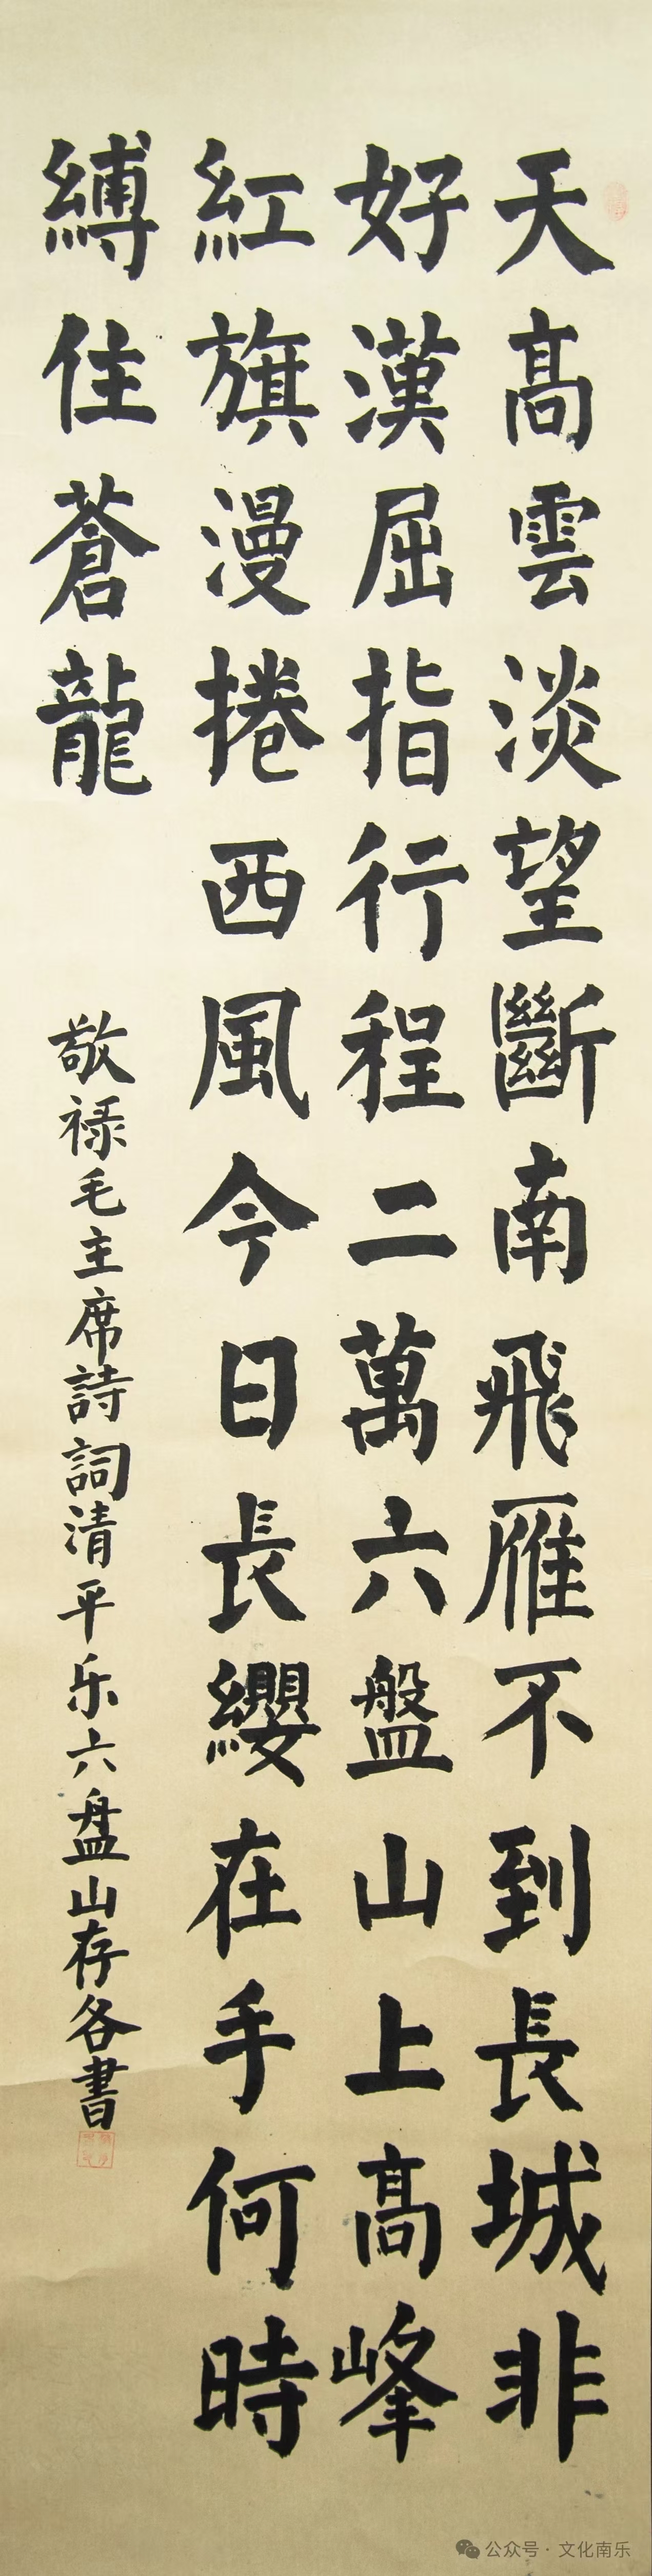 天高雲淡望斷南飛雁不到長城非
好漢屈指行程二萬六盤山上高峰
紅旗漫捲西風今日長纓在手何時
縛住蒼龍
敬禄毛主席詩詞清平乐六盘山存各書
公众号·文化南乐